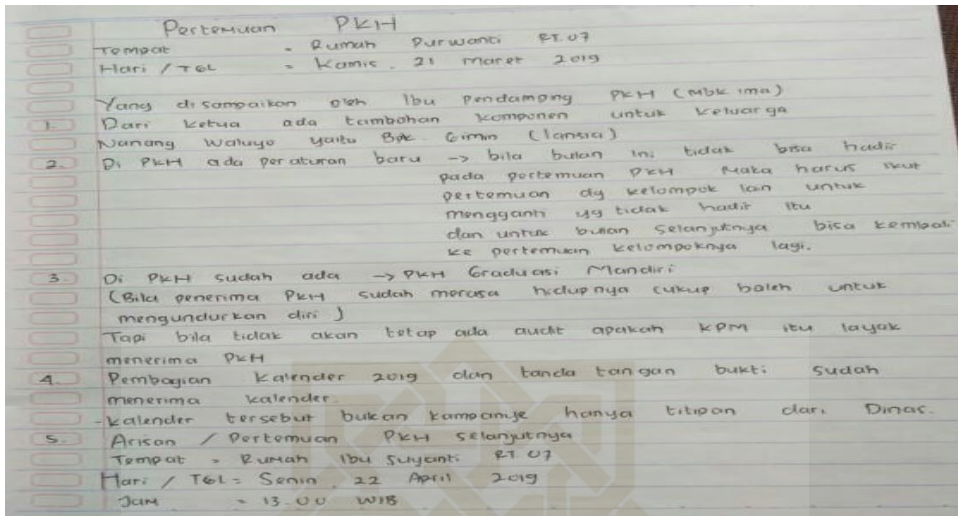 Pertemuan PKH
Tempat = Rumah Purwanti RT.07
Hari / TGL = Kamis, 21 Maret 2019
Yang disampaikan oleh Ibu Pendamping PKH (Mbk ima)
1. Dari Ketua ada tambahan komponen untuk keluarga
Nanang Waluyo yaitu Bpk. Gimin (lansia)
2. Di PKH ada peraturan baru -> bila bulan ini tidak bisa hadir
pada pertemuan PKH Maka harus ikut
pertemuan dg kelompok lain untuk
mengganti yg tidak hadir itu
dan untuk bulan selanjutnya bisa kembali
ke pertemuan kelompoknya lagi.
3. Di PKH sudah ada -> PKH Graduasi Mandiri
(Bila penerima PKH sudah merasa hidupnya cukup boleh untuk
mengundurkan diri)
Tapi bila tidak akan tetap ada audit apakah KPM itu layak
menerima PKH
4. Pembagian Kalender 2019 dan tanda tangan bukti sudah
menerima kalender.
- kalender tersebut bukan kampanye hanya titipan dari Dinas.
5. Arisan / Pertemuan PKH selanjutnya
Tempat = Rumah Ibu Suyanti RT 07
Hari / TGL = Senin, 22 April 2019
Jam = 13.00 WIB